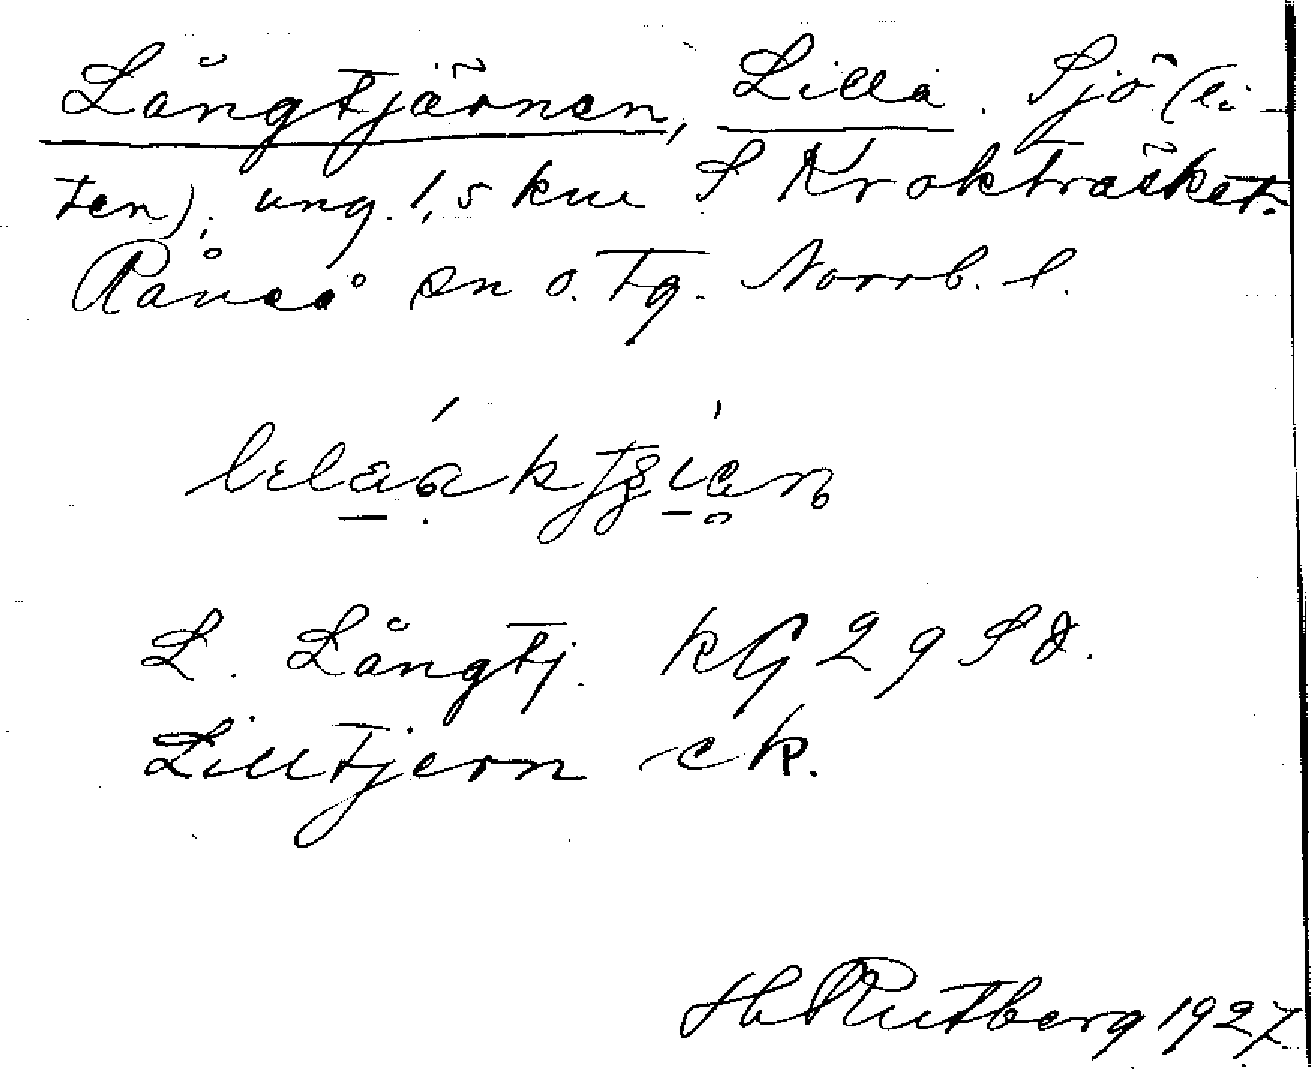 Långtjärnen, Lilla. Sjö (li-
ten), ung. 1,5 km S Kroktråsket.
Råneå sn o. tg. Norrb. l.
L. Långtj. KG 29 SO.
Lilltjern ek.
H Rutberg 1927